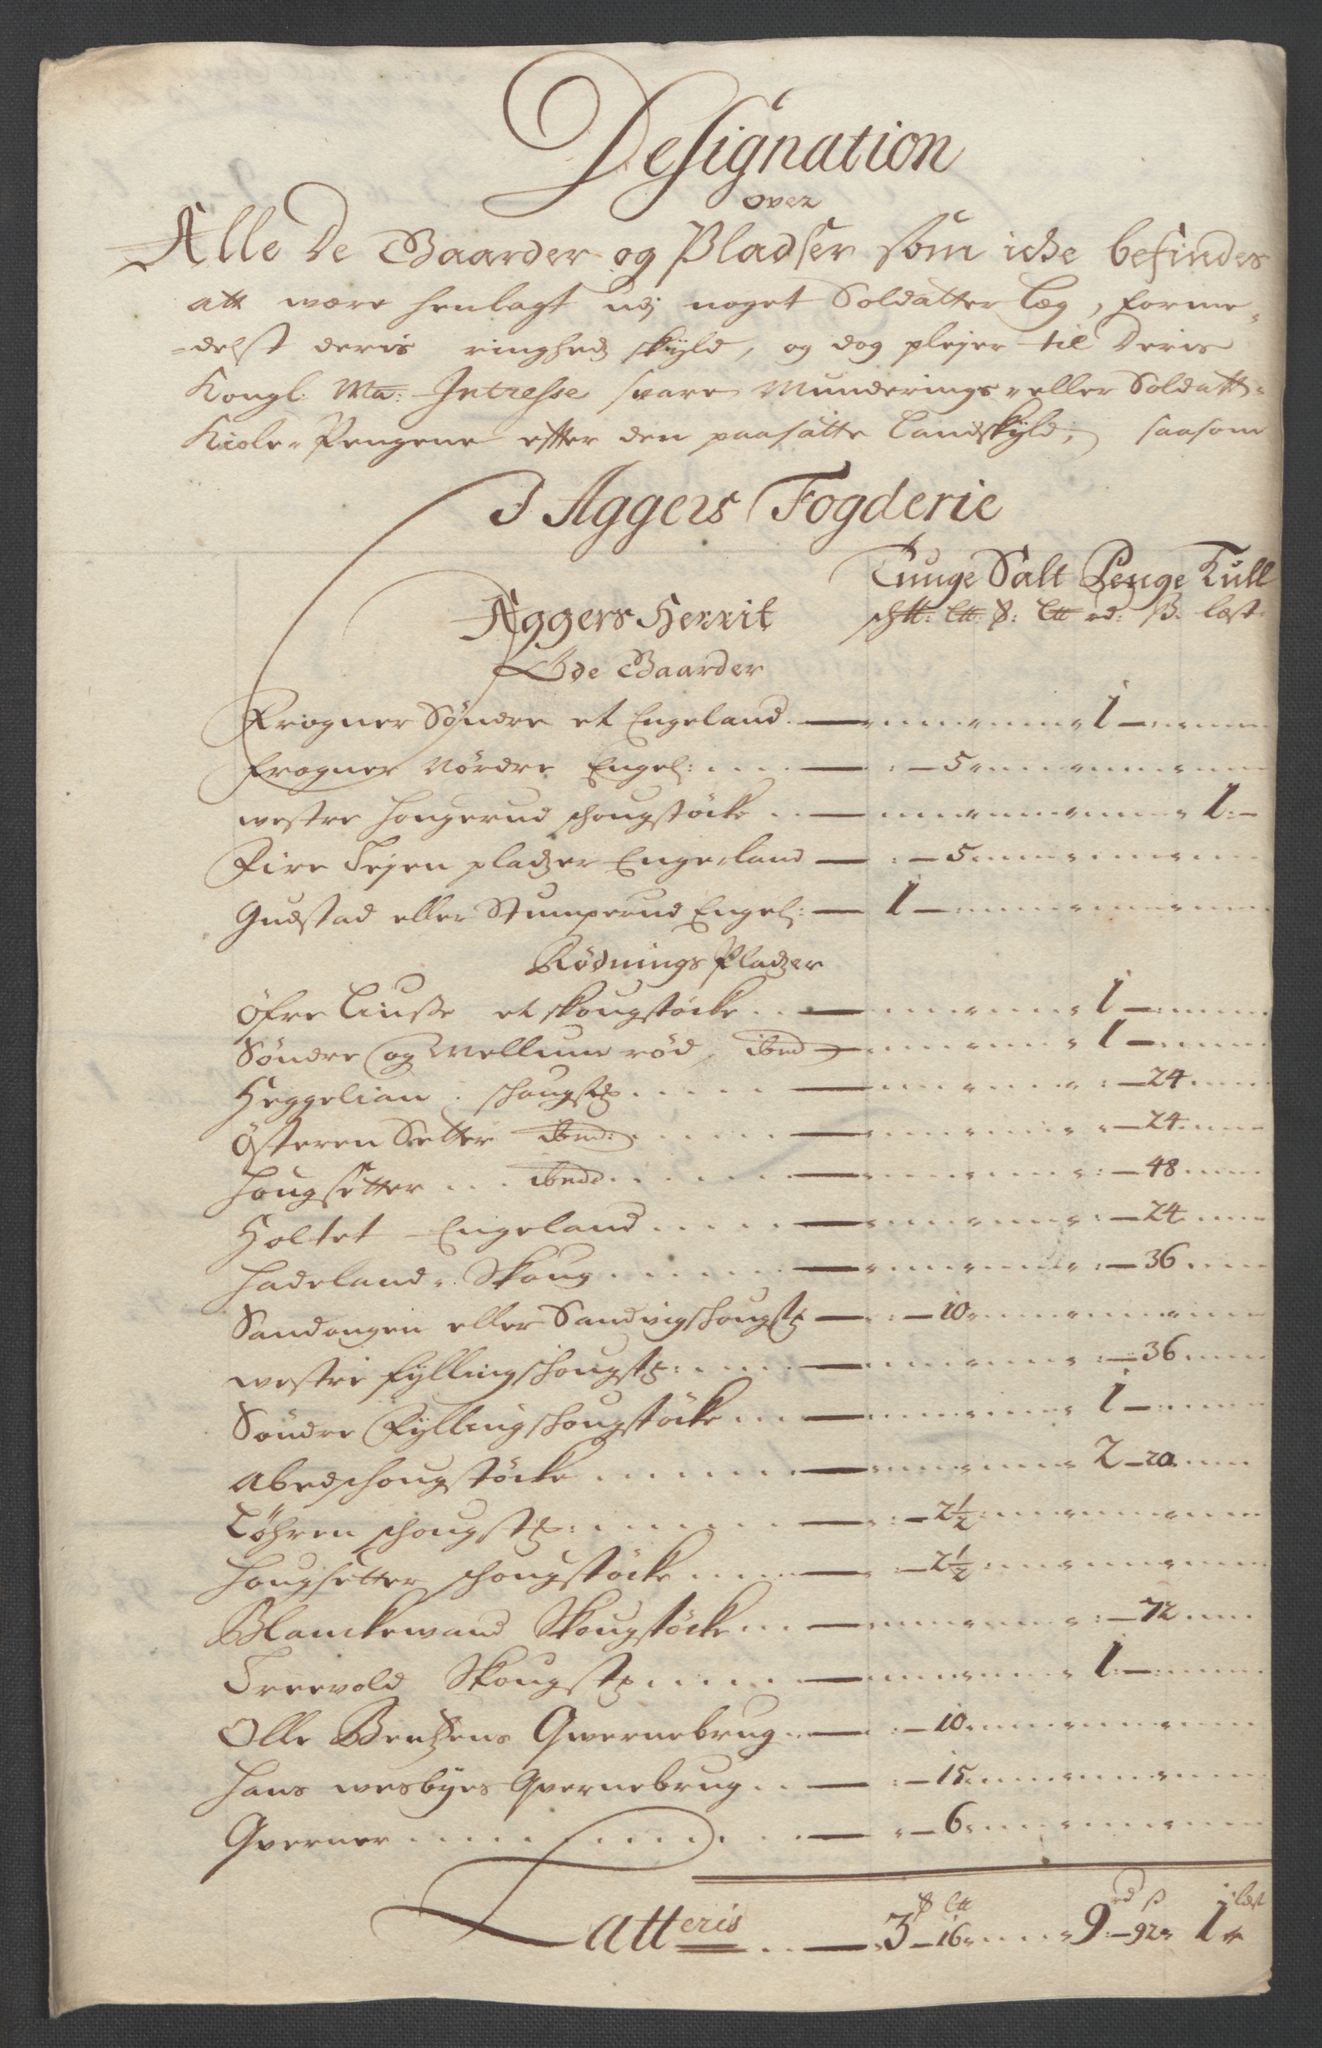 Designation
over
Alle De Gaarder og Pladser som icke befindes
att være henlagt udj noget Soldatter Læg, forme-
-delst deris ringhed skyld, og dog plejer til Deris
Kongl. Ma: Intresse svare Munderings- eller Soldatt-
Kiole-Pengene efter den paasatte Landskyld; saasom
I Aggers Fogderie
Tunge Salt Penge Tull
Aggers Herrit
rd: ß. læst:
Øde Gaarder
Frogner Søndre et Engeland 1
Frogner Nørdre Engel: 5
westre Hougerud schougstöcke 1
Fire Tejen pladtzer Engeland 5
Gudstad eller Stumperud Engel: 1
Rödnings Pladtzer
Öfre Liusse et skougstöcke 1
Søndre og Mellum röd, ibed 1
Heggelian schougst: 24
Österen Setter ibed: 24
Hougsetter ibed: 48
Holtet Engeland 24
Hadeland Skoug 36
Sandongen eller Sandvigschougst: 10
westre fyllingschougst: 36
Søndre Fyllingschougstöcke 1
Abedschougstöcke 2 – 20
Töhren schougst: 2½
Hougsetter schougstöcke 2½
Blanckewand Skougstöcke 72
Treevold Skougst: 1
Olle Bentzens Qwernebrug 10
Hans wesbyes Qvernebrug 15
Qverner 6
rd ß læst
Latteris 3 – 16 9 – 92 1